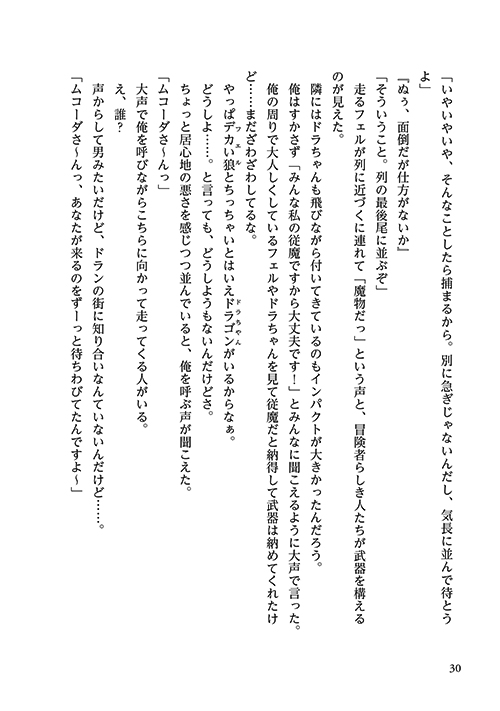 「いやいやいや、そんなことしたら捕まるから。別に急ぎじゃないんだし、気長に並んで待とう
よ」
『ぬぅ、面倒だが仕方がないか』
「そういうこと。列の最後尾に並ぶぞ」
走るフェルが列に近づくに連れて「魔物だっ」という声と、冒険者らしき人たちが武器を構える
のが見えた。
隣にはドラちゃんも飛びながら付いてきているのもインパクトが大きかったんだろう。
俺はすかさず「みんな私の従魔ですから大丈夫です！」とみんなに聞こえるように大声で言った。
俺の周りで大人しくしているフェルやドラちゃんを見て従魔だと納得して武器は納めてくれたけ
ど……まだざわざわしてるな。
やっぱデカい狼とちっちゃいとはいえドラゴンがいるからなぁ。
フェル
ドラちゃん
どうしよ……。と言っても、どうしようもないんだけどさ。
ちょっと居心地の悪さを感じつつ並んでいると、俺を呼ぶ声が聞こえた。
「ムコーダさ～んっ」
大声で俺を呼びながらこちらに向かって走ってくる人がいる。
え、誰？
声からして男みたいだけど、ドランの街に知り合いなんていないんだけど……。
「ムコーダさ～んっ、あなたが来るのをずーっと待ちわびてたんですよ～」
30